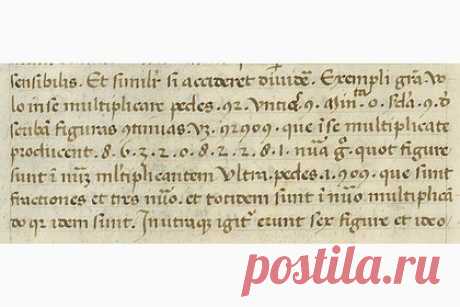 sensibilis. Et similr si accideret diuide. Exempli gra. Vo
lo in se multiplicare pedes .92. Vntias 9. .0. sda .9.
scriba figuras 9tinuas. Vz. 92909. que i se multiplicate
producent .8.6.3.2.0.8.2.2.8.1. quot figure
sunt i multiplicantem Vltra pedes .1. 909. que sunt
fractiones et tres nuo. et totidem sunt i nuo multiplica
do qr idem sunt. In utraque igit erunt sex figure et ideo
postila.ru